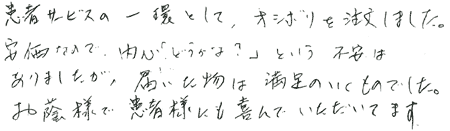 患者サービスの一環として、オシボリを注文しました。
安価なので、内心「どうかな?」という不安は
ありましたが、届いた物は満足のいくものでした。
お蔭様で患者様にも喜んでいただいてます